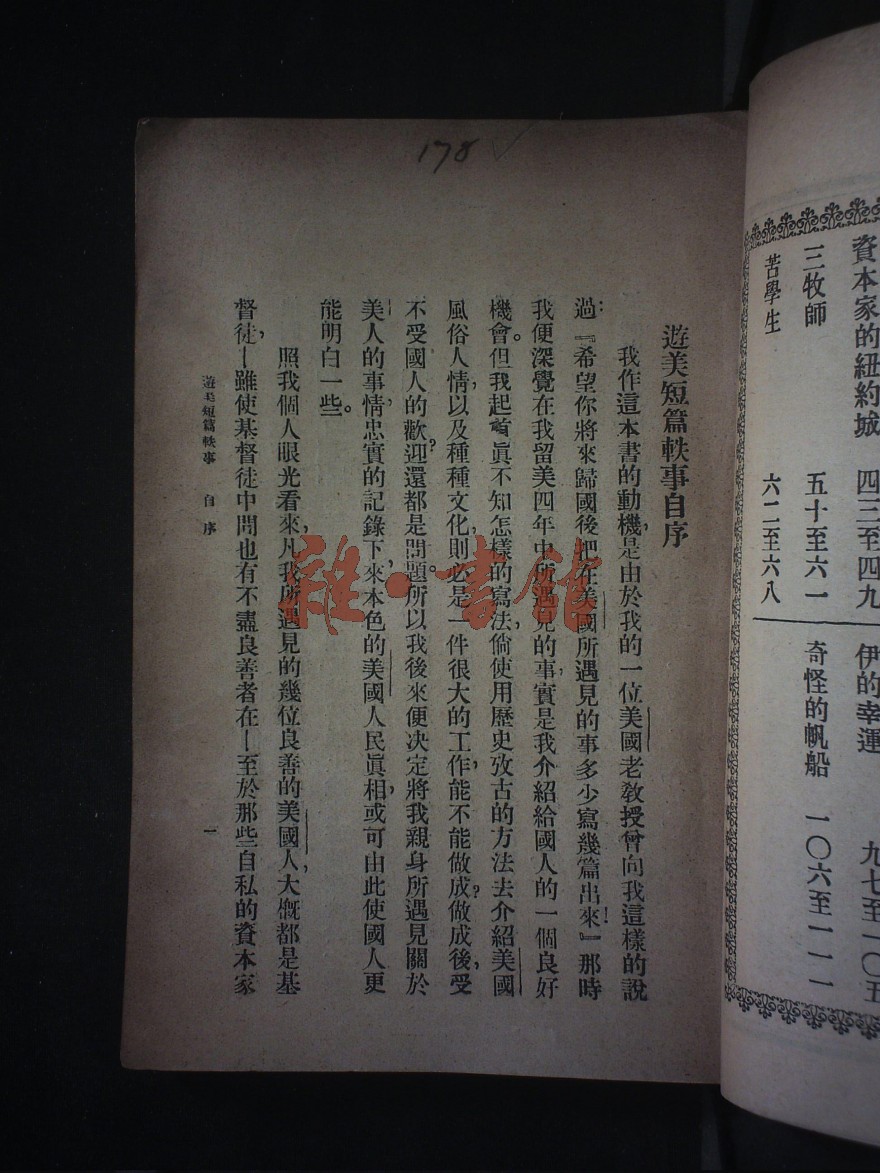 資本家的紐約城 四三至四九
三牧師 五十至六一
苦學生 六二至六八
伊的幸運 九七至一〇五
奇怪的帆船 一〇六至一一一
178
遊美短篇軼事自序
我作這本書的動機,是由於我的一位美國老教授曾向我這樣的說
過:『希望你將來歸國後把在美國所遇見的事多少寫幾篇出來!』那時
我便深覺在我留美四年中所遇見的事實,是我介紹給國人的一個良好
機會。但我起首眞不知怎樣的寫法,倘使用歷史攷古的方法去介紹美國
風俗人情,以及種種文化,則必是一件很大的工作,能不能做成?做成後,受
不受國人的歡迎?還都是問題。所以我後來便決定將我親身所遇見關於
美人的事情,忠實的記錄下來,本色的美國人民眞相,或可由此使國人更
能明白一些。
照我個人眼光看來,凡我所遇見的幾位良善的美國人,大槪都是基
督徒,—雖使基督徒中間也有不盡良善者在—至於那些自私的資本家
遊美短篇軼事 自序
一
雜·書館